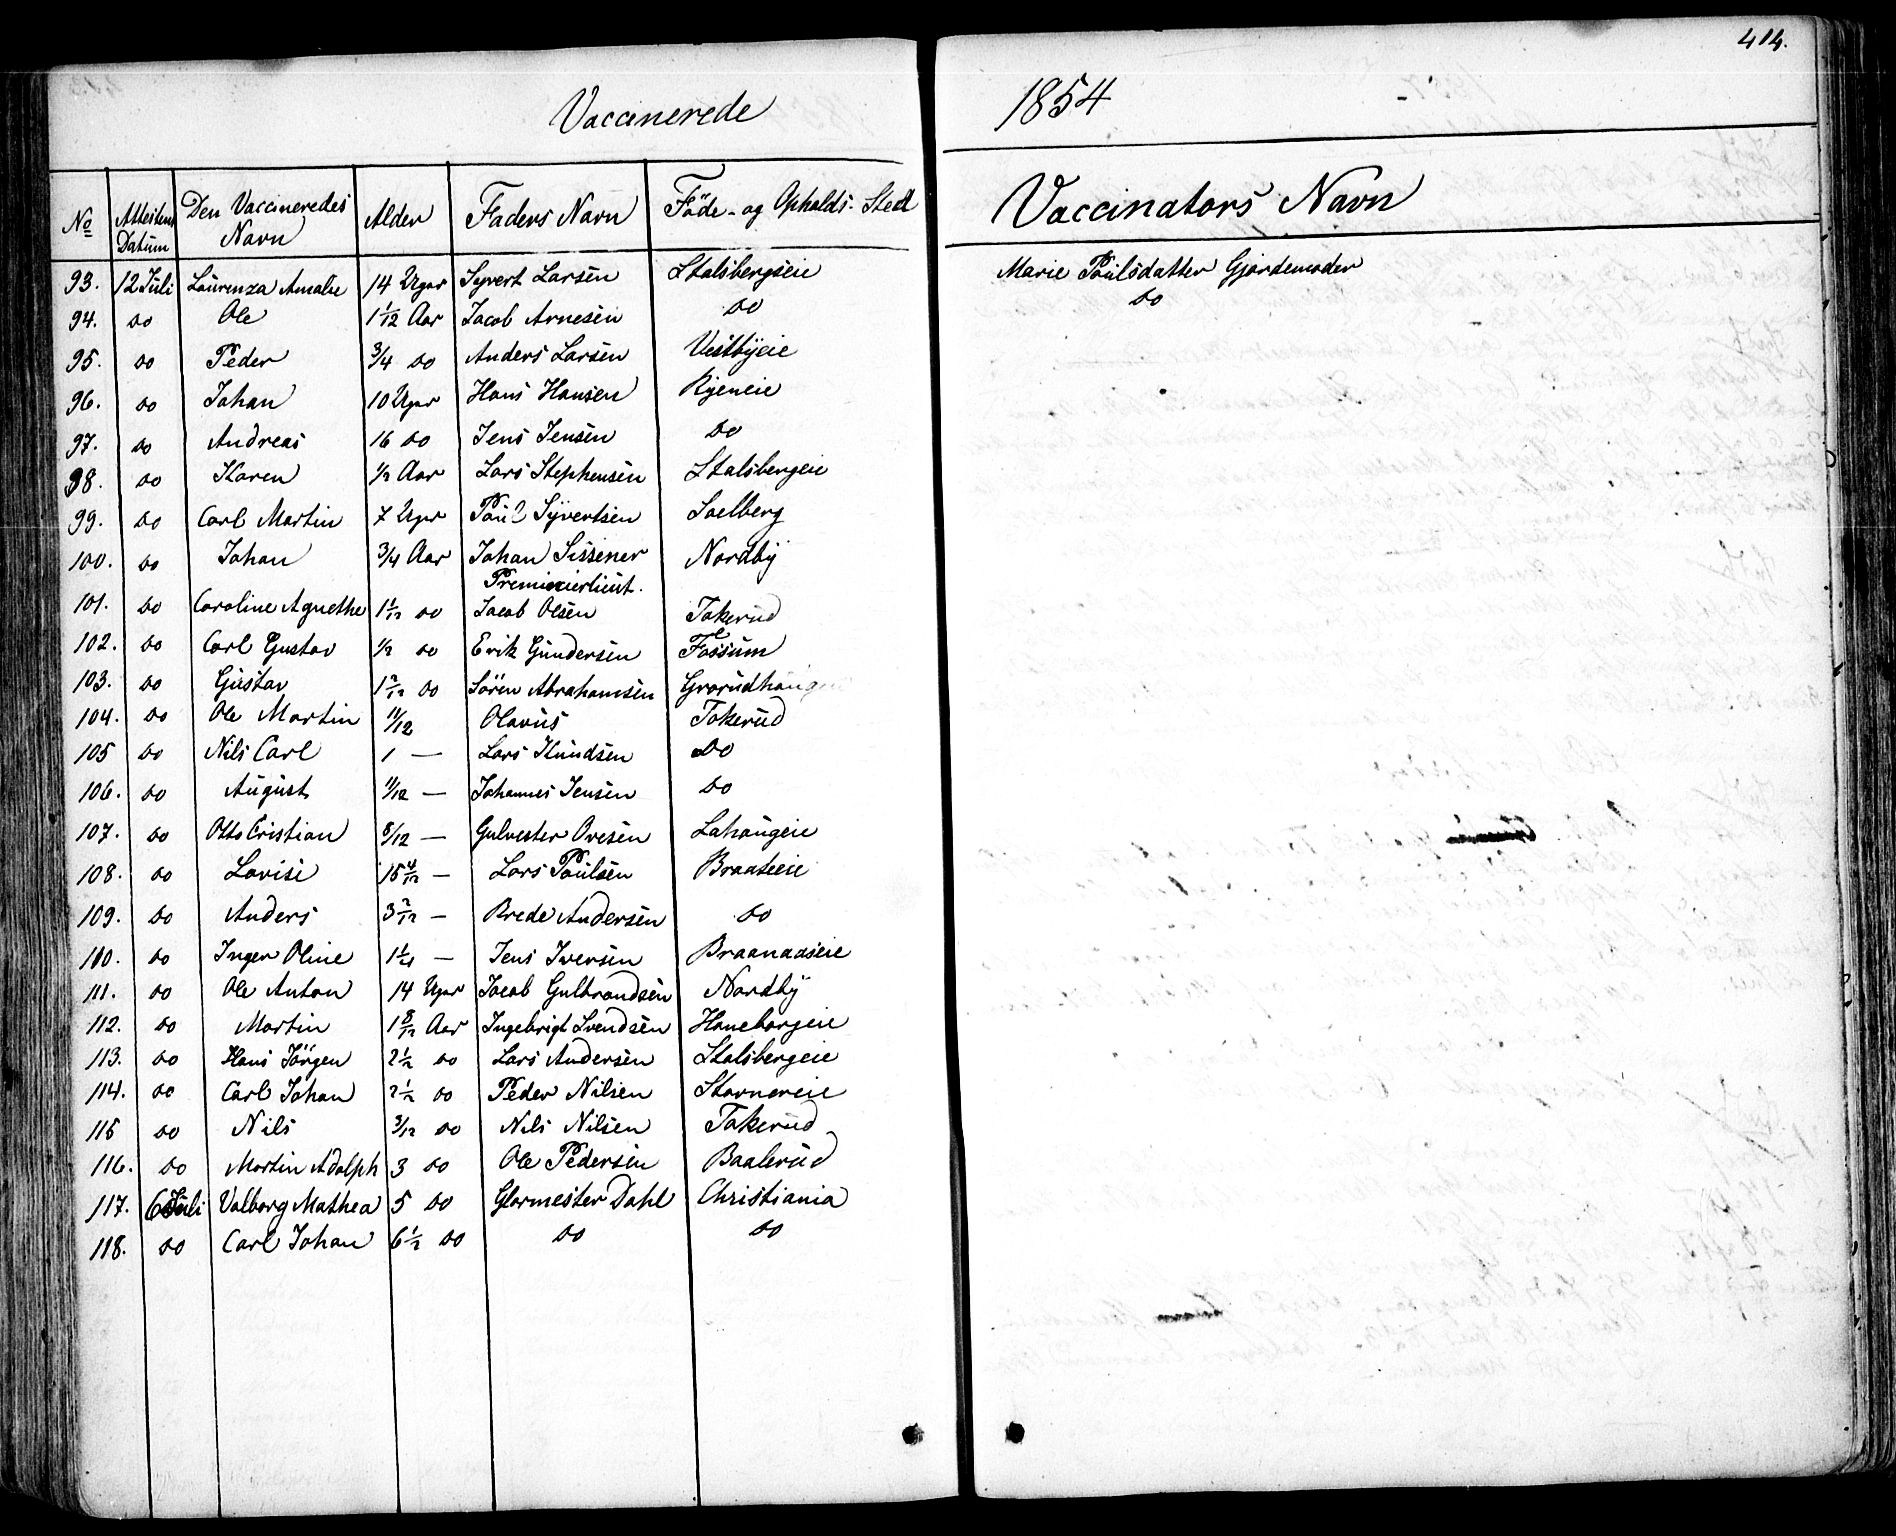 414.
Vaccinerede 1854
No Attestens Datum Den Vaccineredes Navn Alder Faders Navn Föde- og Opholds-Sted Vaccinators Navn
93. 12 Juli Laurenza Amalie 14 Uger Syvert Larsen Stalsbergseie Marie Paulsdatter Gjordemoder
94. do Ole 1 1/12 Aar Jacob Arnesen do do
95. do Peder 3/4 do Anders Larsen Vestbyeie
96. do Johan 10 Uger Hans Hansen Ryeneie
97. do Andreas 16 do Jens Jensen do
98. do Karen 1/2 Aar Lars Stephensen Stalsbergeie
99. do Carl Martin 7 Uger Paul Syvertsen Soelberg
100. do Johan 3/4 Aar Johan Sissener Nordby
Premierlieut.
101. do Caroline Agnethe 1 1/12 do Jacob Olsen Tokerud
102. do Carl Gustav 1/2 do Erik Gundersen Fossum
103. do Gustav 1 2/12 do Sören Abrahamsen Grorudhaugen
104. do Ole Martin 11/12 Olavus Tokerud
105 do Nils Carl 1 — Lars Knudsen Do
106. do August 11/12 — Johannes Jensen do
107. do Otto Cristian 8/12 — Gulvester Ovesen Lahaugeie
108. do Lovise 15 4/12 — Lars Paulsen Braateeie
109. do Anders 3 2/12 — Brede Andersen do
110. do Inger Oline 1 1/4 — Jens Iversen Braanaaseie
111. do Ole Anton 14 Uger Jacob Gulbrandsen Nordby
112. do Martin 1 8/12 Aar Ingebrigt Svendsen Haneborgeie
113. do Hans Jörgen 2 1/2 do Lars Andersen Stalsbergeie
114. do Carl Johan 2 1/2 do Peder Nilsen Stovnereie
115 do Nils 3/12 do Nils Nilsen Tokerud
116. do Martin Adolph 3 do Ole Pedersen Baalerud
117. 6 Juli Valborg Mathea 5 do Glarmester Dahl Christiania
118. do Carl Johan 6 1/2 do do do